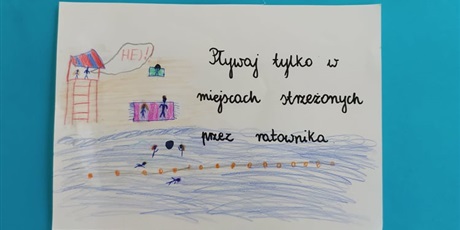 HEJ!
Pływaj tylko w
miejscach strzeżonych
przez ratownika